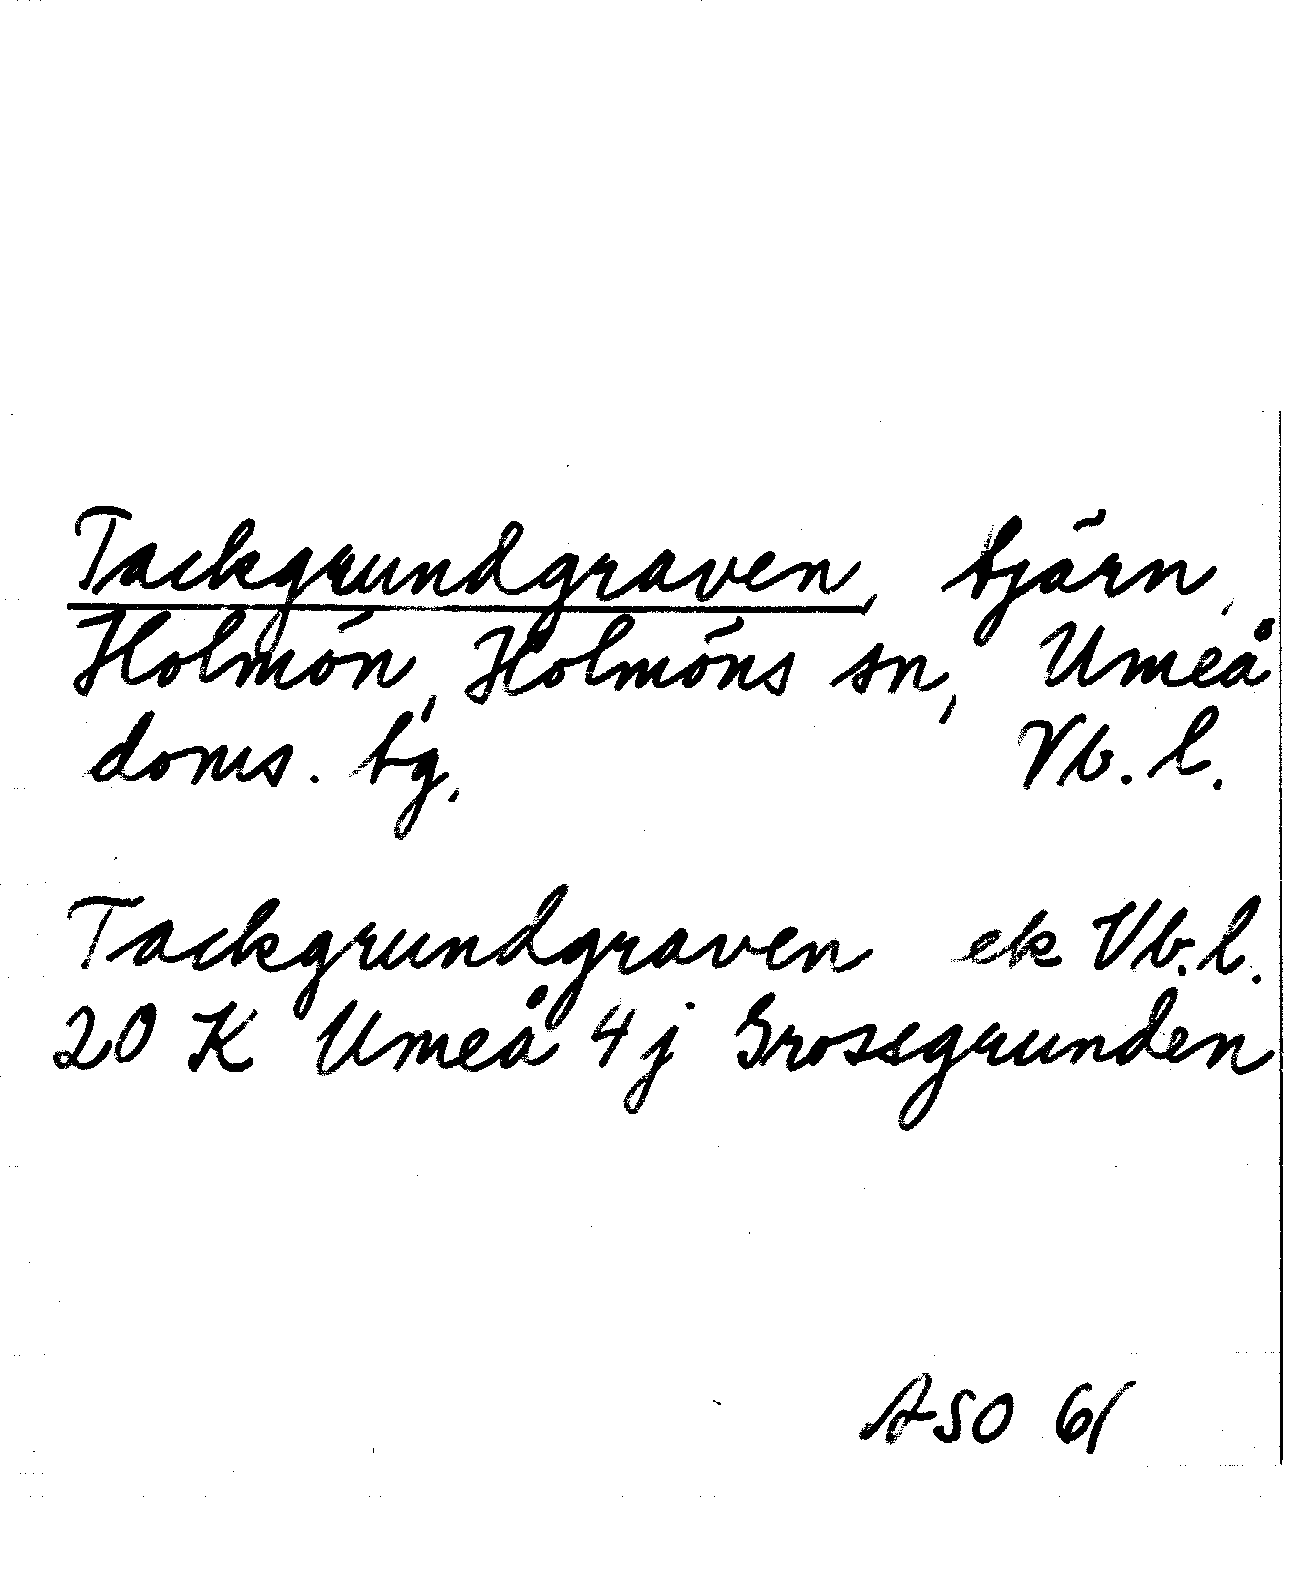 Tackgrundgraven, tjärn,
Holmön, Holmöns sn, Umeå
doms. tg. Vb. l.
Tackgrundgraven ek Vb. l.
20 K Umeå 4 j Grossgrunden
ASO 61